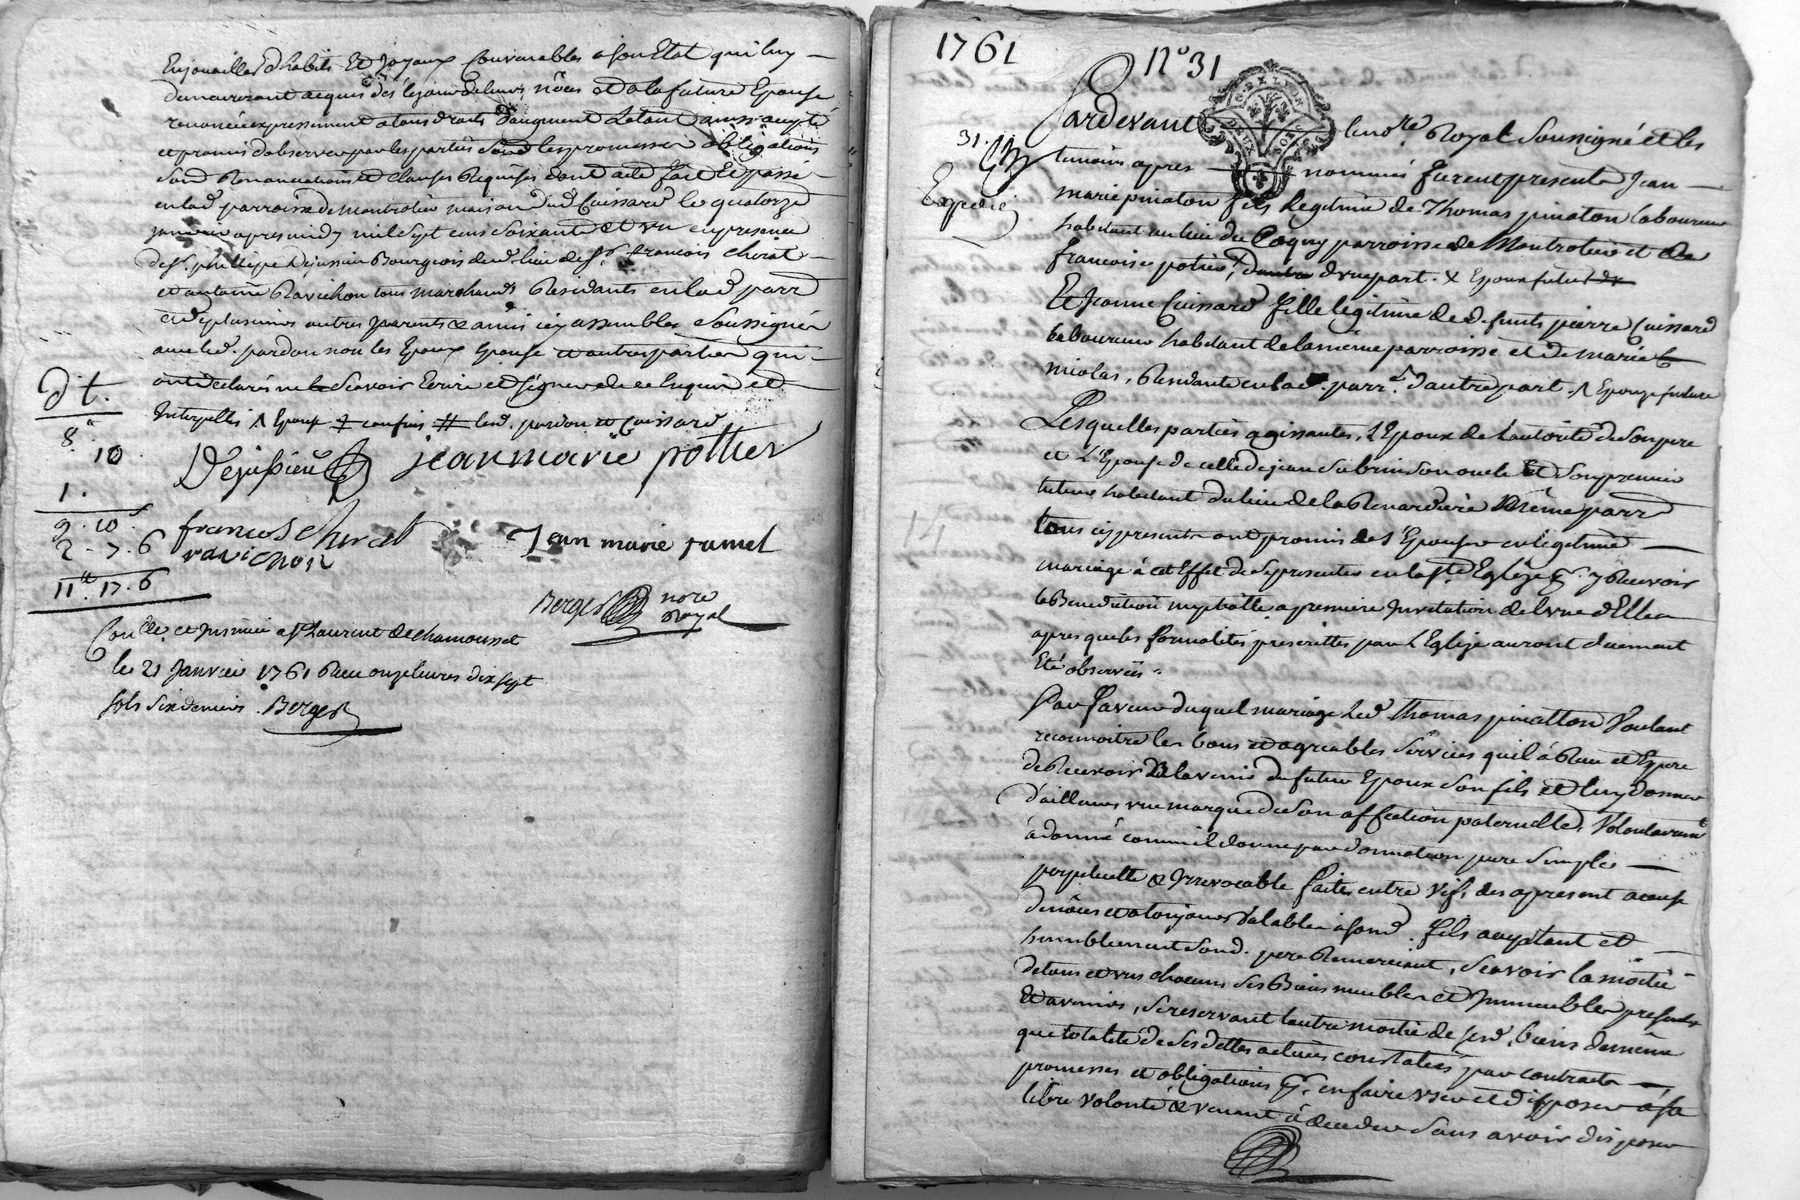 Enjouailler d'habits Et Joyaux Convenables a son Etat qui luy
demeureront acquis dés le jour de leurs nôces et a la future Epouse
renoncé expressement a tous droits d'augment Letout ainsi accepté
et promis d'observer par les parties Sous les promesses obligations
Soud. Renonciations et clauses Requises dont acte fait Et passé
en lad. parroisse de Montrotier maison dud. Cuissard le quatorze
janvier apres midy mil sept cens soixante et un en presence
de Sr. philippe Dejussieu Bourgeois dud. lieu de Sr. francois Chirat
et antoine Ravichon tous marchands Residants en lad. parr.
et de plusieurs autres parents & amis icy assembles Soussignés
avec led. pardon non les Epoux Epouse et autres parties qui
ont declarés ne Scavoir Ecrire et signer de ce Enquis et
Interpellés Λ Epouse ‡ confins # led. pardon et Cuissard
d t.
8 "
10
1 .
9 . 10
2 . 7 . 6
11 " 17 . 6
Dejussieu jean marie pottier
francois Chirat
ravichon
Jean marie ramel
Berger nore
Royal
Con.lé et Insinué a St Laurent de chamousset
le 21 Janvier 1761 Recu onze livres dix sept
sols six deniers . Berger
1761
N° 31
31.
Expedié
Pardevant le no.re Royal Soussigné et les
temoins apres nommés furent presents Jean
marie pinaton fils Legitime de Thomas pinaton laboureur
habitant au lieu du Cogny parroisse de Montrotier et de
francoise potier, d'une part . x Epoux futur
Et Jeanne Cuissard fille legitime de defunts pierre Cuissard
laboureur habitant de la méme parroisse et de marie
nicolas, Residante en lad. parr.e d'autre part . Λ Epouse future
Lesquelles parties agissantes, L'Epoux de l'autorité de Son pere
et L'Epouse de celle de jean Subrin Son oncle Et Son premier
tuteur habitant du lieu de la Renardiere Méme parr.
tous icy presents ont promis de S'Epouser en legitime
mariage à cet Effet de Se presenter en la Ste Eglize pr. y Recevoir
la Benediction nuptialle a premiere Invitation de l'une d'Elles
apres que les formalités prescrittes par L'Eglize auront duement
Eté observées.
En faveur duquel mariage Led. Thomas pinatton Voulant
reconnoitre les bons et agreables Services qu'il à Recu et Espere
de Recevoir à l'avenir du futur Epoux Son fils et luy donner
d'ailleurs une marque de Son affection paternelle, Volontairemt
à donné comme il donne par donnation pure Simple
perpetuelle & Irrevocable faite entre vifs des apresent a cause
de nôces et a toujours Valable a Soud. fils acceptant et
humblement Soud. pere Remerciant, Scavoir la moitié
de tous et uns chacuns Ses Biens meubles et Immeubles presents
Et avenirs, Se reservant l'autre moitié de sesd. biens de méme
que totalité de Ses dettes actives constatées par contracts
promesses et obligations pr. en faire user et disposer à Sa
libre volonté & venant à deceder Sans avoir disposer